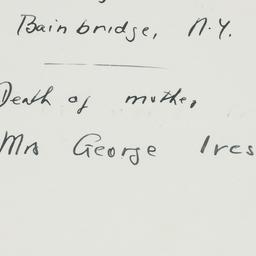 Bainbridge, N.Y.
Death of mother,
Mrs George Ives